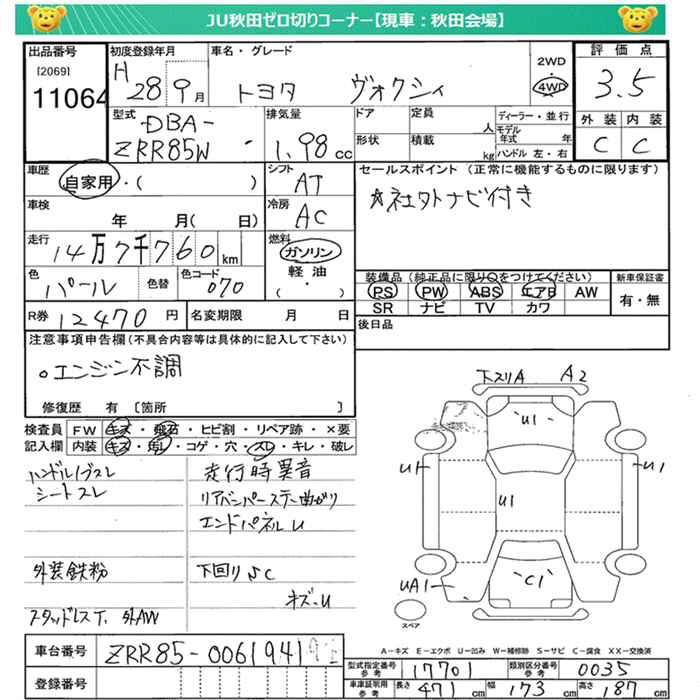 JU秋田ゼロ切りコーナー【現車：秋田会場】
出品番号
[2069]
11064
初度登録年月
H 28 9月
車名・グレード
トヨタ ヴォクシィ
2WD
4WD
評価点
3.5
外装 内装
C C
型式
DBA-
ZRR85W
排気量
1.98 cc
ドア
形状
定員 人
積載 kg
ディーラー・並行
モデル年式 年
ハンドル 左・右
車歴
自家用・( )
シフト
AT
セールスポイント（正常に機能するものに限ります）
☆社外ナビ付き
車検
年 月( 日)
冷房
AC
走行
14万7千760km
燃料
ガソリン
軽油
・( )
色
パール
色替
色コード
070
装備品（純正品に限り○をつけてください）
PS PW ABS エアB AW
SR ナビ TV カワ
新車保証書
有・無
R券 12470円
名変期限 月 日
後日品
注意事項申告欄(不具合内容等は具体的に記入して下さい)
○エンジン不調
修復歴 有 〔箇所 〕
検査員記入欄
FW キズ・飛石・ヒビ割・リペア跡・×要
内装 キズ・汚レ・コゲ・穴・スレ・キレ・破レ
ハンドル/グスレ
シートスレ
外装鉄粉
スタッドレスT. 外AW
走行時異音
リアバンパーステー曲がり
エンドパネルU
下回りSC
キズ-U
下スリA A2
U1
U1
U1
U1
UA1
C1
スペア
A−キズ E−エクボ U−凹み W−補修跡 S−サビ C−腐食 XX−交換済
車台番号
ZRR85-0061941
登録番号
型式指定番号 参考 17701
類別区分番号 参考 0035
車庫証明用 参考 長さ 471 幅 173 cm 高さ 187 cm